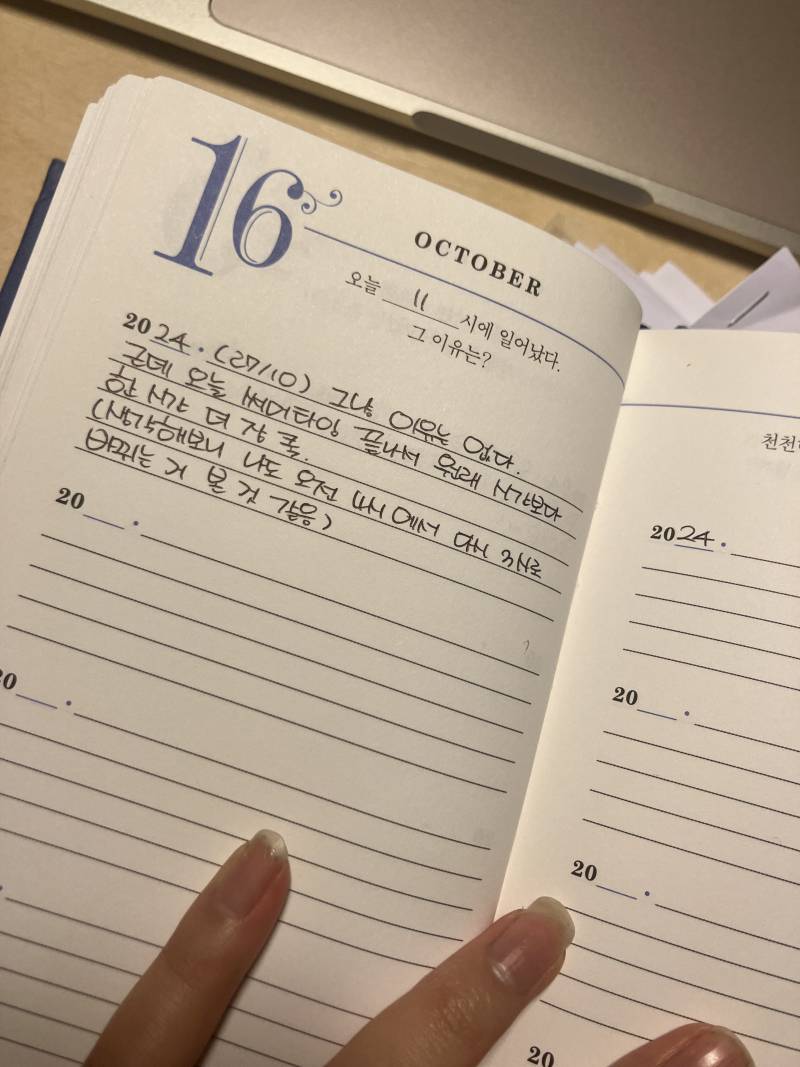 16
OCTOBER
오늘 11 시에 일어났다.
그 이유는?
2024 · (27/10) 그냥 이유는 없다.
근데 오늘 써머타임 끝나서 원래 시간보다
한 시간 더 잠 쿡.
(생각해보니 나도 오전 4시에서 다시 3시로
바뀌는 거 본 것 같음)
20 ·
20 ·
천천
2024 ·
20 ·
20 ·
20